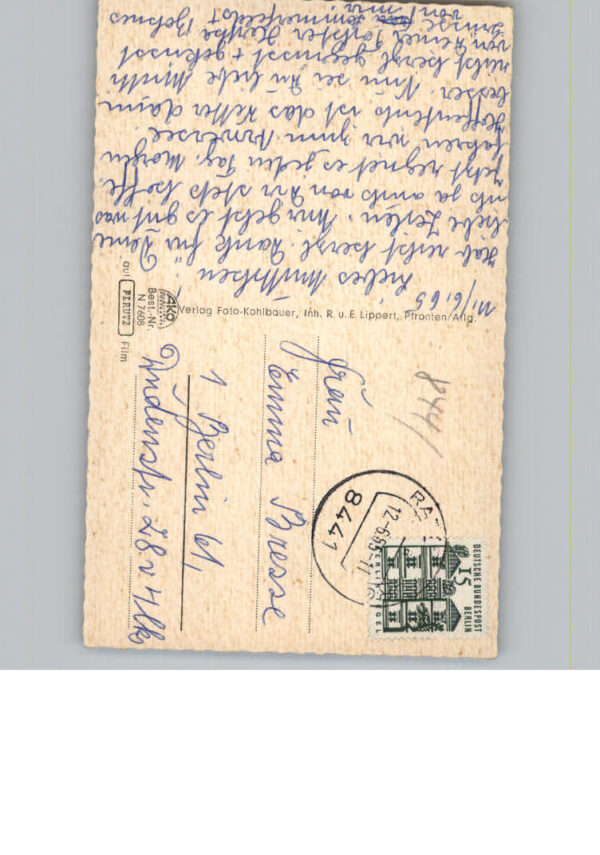 11/6.65
Liebes Muttchen
Hab recht herzl. Dank für Deine
liebe Zeilen. Mir geht es gut was
ich ja auch von Dir stets hoffe.
Jetzt regnet es jeden Tag. Morgen
fahren wir zum
Hoffentlich ist das Wetter dann
besser. Nun sei Du liebe Mutti
recht herzl. gegrüsst + geküsst
von Deiner Tochter
Grüsse
von
Verlag Foto-Kohlbauer, Inh. R. u. E. Lippert, Pfronten/Allg.
Ako
Best.-Nr.
N 7606
auf PERUTZ Film
844/
Frau
Emma Bresse
1 Berlin 61,
8441
12.-6.65
DEUTSCHE BUNDESPOST
BERLIN
15